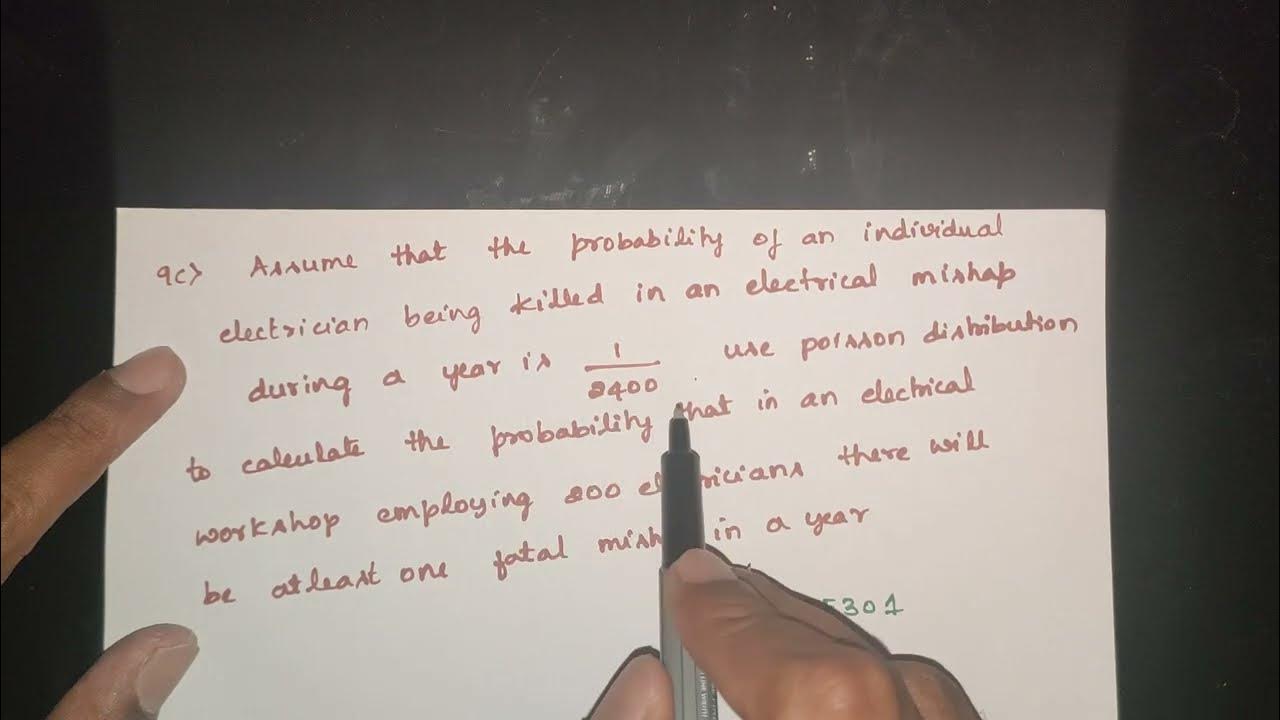 9c) Assume that the probability of an individual
electrician being killed in an electrical mishap
during a year is 1/2400. use poisson distribution
to calculate the probability that in an electrical
workshop employing 200 electricians there will
be atleast one fatal mishap in a year
5301